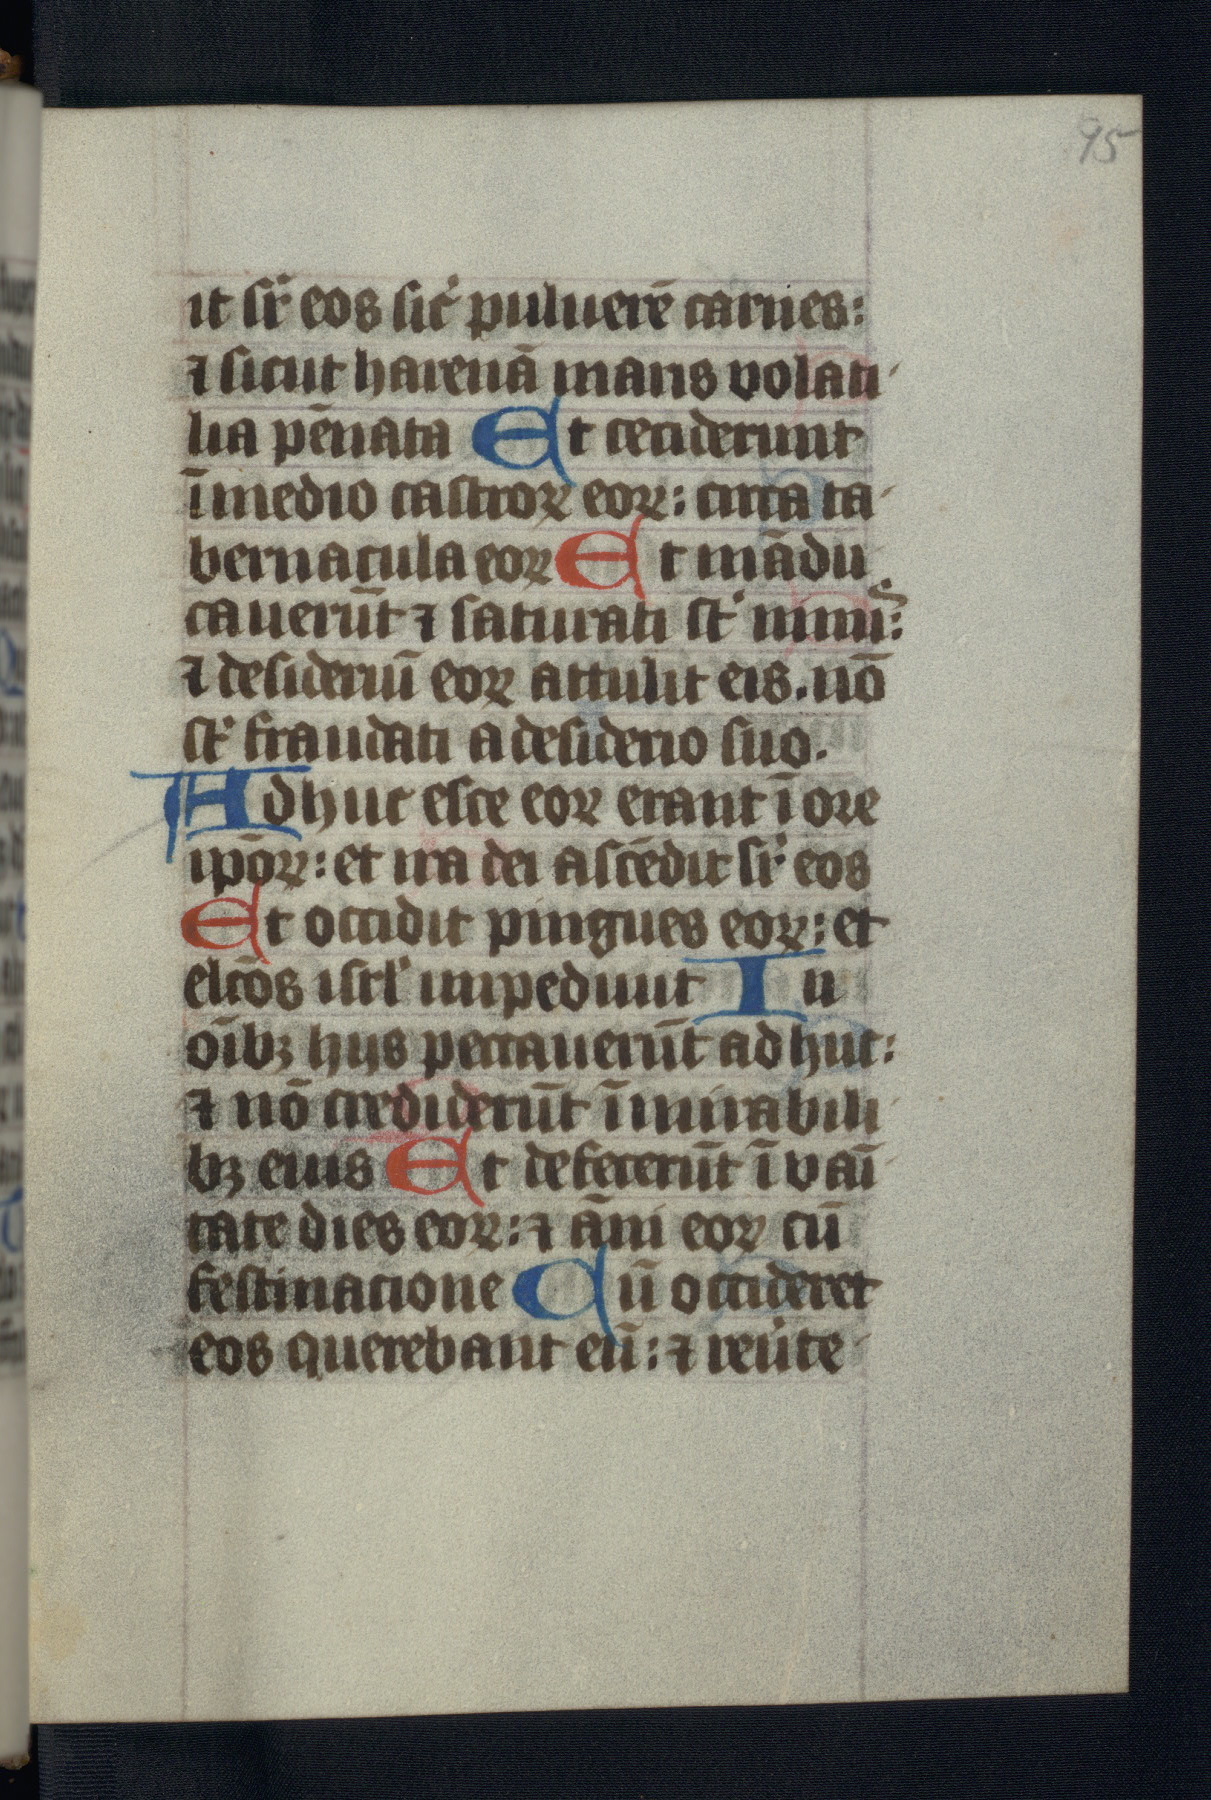 95
it sr̄ eos sic̄ puluerē carnes:
⁊ sicut harenā maris volati
lia pēnata Et ceciderunt
ī medio castroꝝ eoꝝ: circa ta
bernacula eoꝝ Et mādu
cauerūt ⁊ saturati st̄ nimis:
⁊ desideriū eoꝝ attulit eis. nō
st̄ fraudati a desiderio suo.
Adhuc esce eoꝝ erant ī ore
ip̄oꝝ: et ira dei ascēdit sr̄ eos
Et occidit pingues eoꝝ: et
elc̄os isrl̄ impediuit In
oībꝫ hijs peccauerūt adhuc:
⁊ nō crediderūt ī mirabili
bꝫ eius Et defecerūt ī vani
tate dies eoꝝ: ⁊ āni eoꝝ cū
festinacione Cū occideret
eos querebant eū: ⁊ reūte